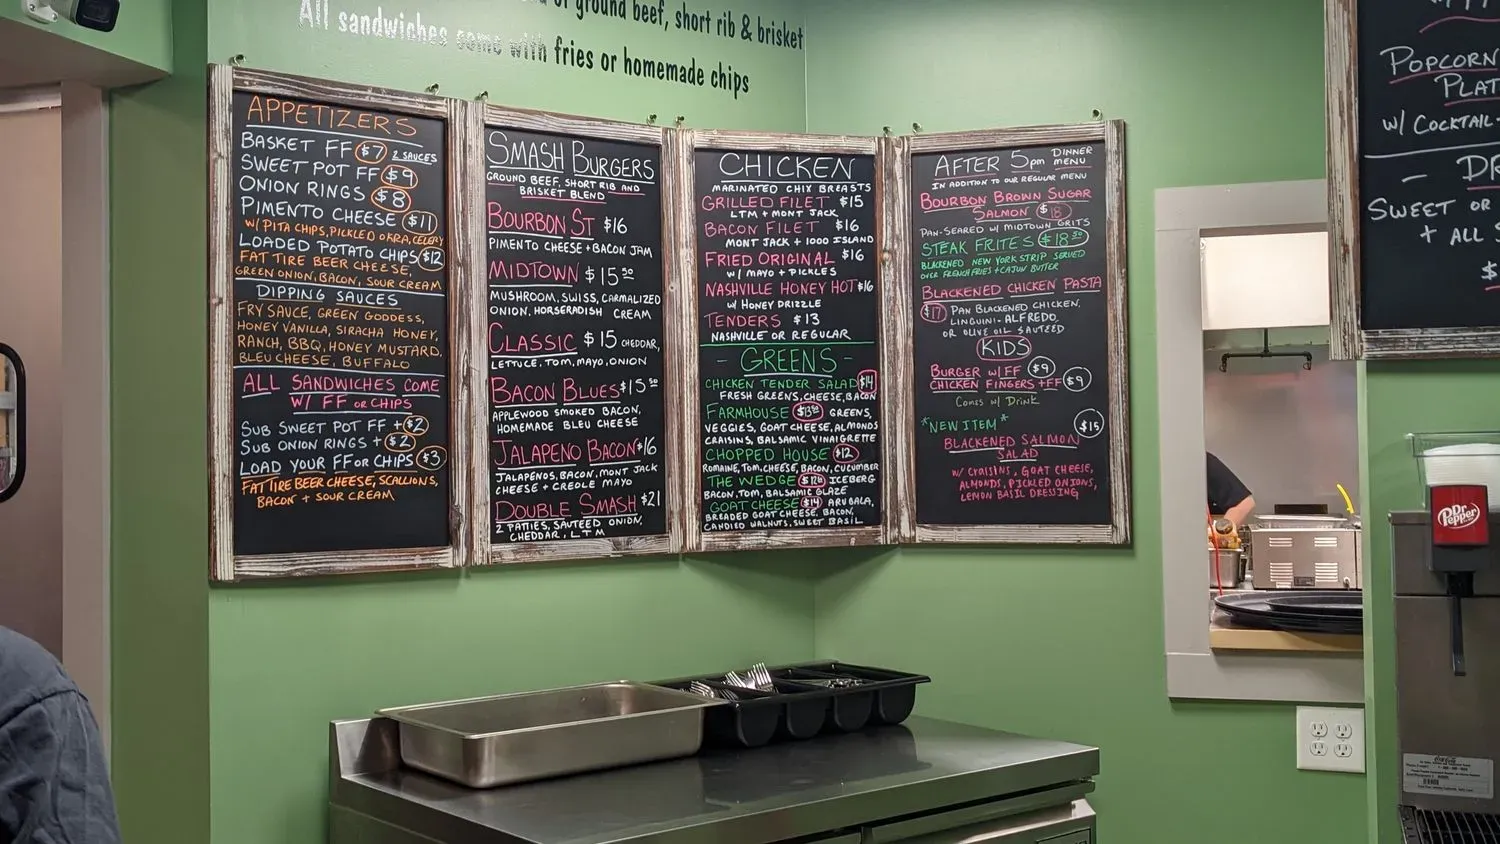 of ground beef, short rib & brisket
All sandwiches come with fries or homemade chips
APPETIZERS
BASKET FF $7 2 SAUCES
SWEET POT FF $9
ONION RINGS $8
PIMENTO CHEESE $11
W/ PITA CHIPS, PICKLED OKRA, CELERY
LOADED POTATO CHIPS $12
FAT TIRE BEER CHEESE,
GREEN ONION, BACON, SOUR CREAM
DIPPING SAUCES
FRY SAUCE, GREEN GODDESS,
HONEY VANILLA, SIRACHA HONEY,
RANCH, BBQ, HONEY MUSTARD,
BLEU CHEESE, BUFFALO
ALL SANDWICHES COME
W/ FF OR CHIPS
SUB SWEET POT FF + $2
SUB ONION RINGS + $2
LOAD YOUR FF OR CHIPS $3
FAT TIRE BEER CHEESE, SCALLIONS,
BACON + SOUR CREAM
SMASH BURGERS
GROUND BEEF, SHORT RIB AND
BRISKET BLEND
BOURBON ST $16
PIMENTO CHEESE + BACON JAM
MIDTOWN $15 50
MUSHROOM, SWISS, CARMALIZED
ONION, HORSERADISH CREAM
CLASSIC $15 CHEDDAR,
LETTUCE, TOM, MAYO, ONION
BACON BLUES $15 50
APPLEWOOD SMOKED BACON,
HOMEMADE BLEU CHEESE
JALAPENO BACON $16
JALAPEÑOS, BACON, MONT JACK
CHEESE + CREOLE MAYO
DOUBLE SMASH $21
2 PATTIES, SAUTEED ONION,
CHEDDAR, LTM
CHICKEN
MARINATED CHIX BREASTS
GRILLED FILET $15
LTM + MONT JACK
BACON FILET $16
MONT JACK + 1000 ISLAND
FRIED ORIGINAL $16
W/ MAYO + PICKLES
NASHVILLE HONEY HOT $16
W/ HONEY DRIZZLE
TENDERS $13
NASHVILLE OR REGULAR
- GREENS -
CHICKEN TENDER SALAD $14
FRESH GREENS, CHEESE, BACON
FARMHOUSE $13 50 GREENS,
VEGGIES, GOAT CHEESE, ALMONDS
CRAISINS, BALSAMIC VINAIGRETTE
CHOPPED HOUSE $12
ROMAINE, TOM, CHEESE, BACON, CUCUMBER
THE WEDGE ICEBERG
BACON, TOM, BALSAMIC GLAZE
GOAT CHEESE $14 ARUGALA,
BREADED GOAT CHEESE, BACON,
CANDIED WALNUTS, SWEET BASIL
AFTER 5pm DINNER MENU
IN ADDITION TO OUR REGULAR MENU
BOURBON BROWN SUGAR
SALMON $18
PAN-SEARED W/ MIDTOWN GRITS
STEAK FRITES $18 50
BLACKENED NEW YORK STRIP SERVED
OVER FRENCH FRIES + CAJUN BUTTER
BLACKENED CHICKEN PASTA
$17 PAN BLACKENED CHICKEN,
LINGUINI - ALFREDO,
OR OLIVE OIL SAUTEED
KIDS
BURGER W/ FF $9
CHICKEN FINGERS + FF $9
COMES W/ DRINK
*NEW ITEM* $15
BLACKENED SALMON
SALAD
W/ CRAISINS, GOAT CHEESE,
ALMONDS, PICKLED ONIONS,
LEMON BASIL DRESSING
POPCORN
PLAT
W/ COCKTAIL
- DR
SWEET OR
+ ALL S
$
Dr Pepper